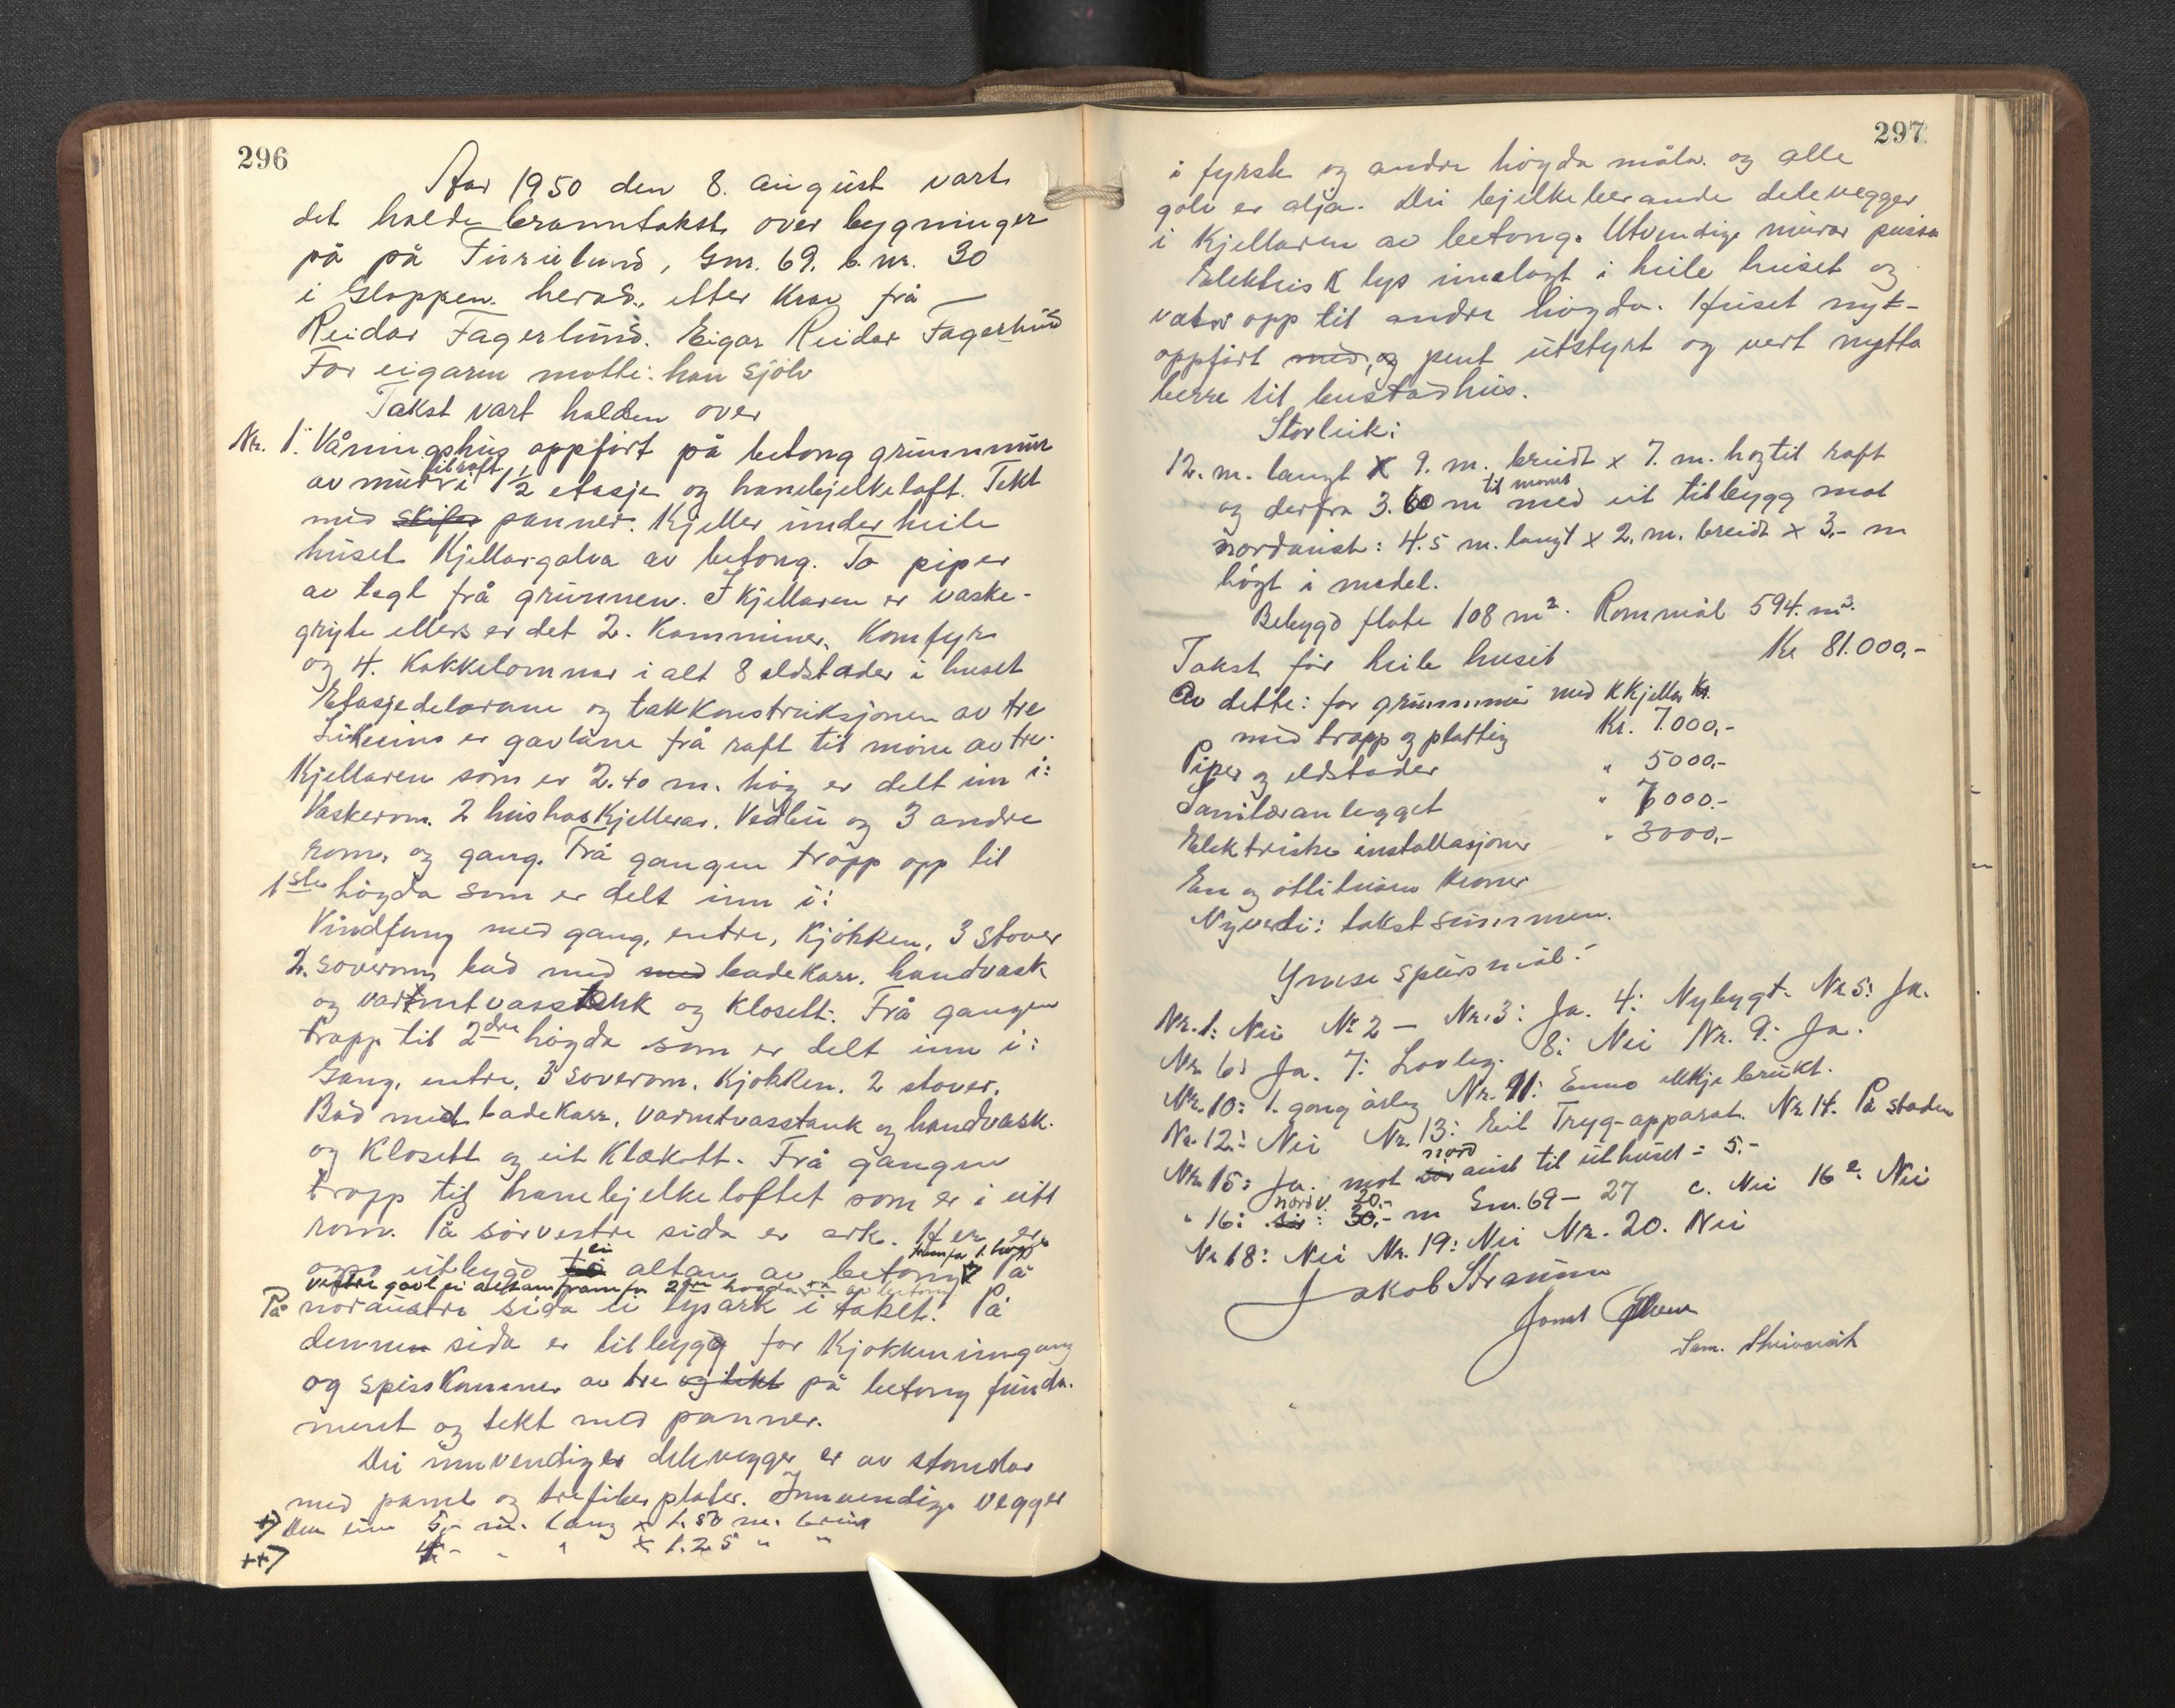 296
Aar 1950 den 8. august vart
det halde branntakst over bygninger
på på Furulund, Gnr. 69. b. nr. 30
i Gloppen herad. etter krav frå
Reidar Fagerlund. Eigar Reidar Fagerlund
For eigaren møtte: han sjölv
Takst vart halden over
Nr. 1. Våningshus oppfört på betong grunnmur
av mur til raft i 1 1/2 etasje og hanebjelkeloft. Tekt
med skifer panner. Kjeller under heile
huset Kjellargolva av betong. To piper
av tegl frå grunnen. I kjellaren er vaske-
gryte ellers er det 2. Kaminer, Komfyr
og 4. Kakkelomnar i alt 8 eldstader i huset
Etasjedelarane og takkonstruksjonen av tre
Likeeins er gavlane frå raft til möne av tre.
Kjellaren som er 2.40 m. høg er delt inn i:
Vaskerom. 2 hushaskjellerar. Vedbu og 3 andre
rom, og gang. Frå gangen tropp opp til
1ste högda som er delt inn i:
Vindfang med gang, entre, kjökken, 3 stover
2. soverom, bad med med badekarr. handvask
og varmtvasstank og klosett. Frå gangen
trapp til 2dre högda som er delt inn i:
Gang, entre, 3 soverom, kjökken, 2 stover,
Bad med badekarr, varmtvasstank og handvask.
og Klosett og eit Klækott. Frå gangen
tropp til hanebjelkeloftet som er i eitt
rom. På sörvestre sida er ark. Her er
framfor 1. högda
oppo utbygd to ei altan av betong På
vestre gavl ei altan framfor 2dre högda ++ av betong
På noraustre sida ei lysark i taket. På
dennen sida er tilbygg for Kjökkeninngang
og spisskammer av tre og tekt på betong funda-
ment og tekt med panner.
Dei innvendiger delevegger er av stendar
med panel og trefiberplater. Innvendige vegger
+) Den eine 5,- m. lang x 1.50 m. breid
++) 4,- " " x 1.25 " "
297
i fyrste og andre högda måla. og alle
golv er olja. Dei bjelkeberande delevegger
i Kjellaren av betong. Utvendige murar pussa
Elektrisk lys innlagt i heile huset og
vatn opp til andre högda. Huset nyt-
oppfört med, og pent utstyrt og vert nytta
berre til bustadhus.
Storleik:
12. m. langt x 9. m. breidt x 7. m. høg til raft
og derfra 3.60 m til mønet med eit tilbygg mot
nordaust: 4.5 m. langt x 2. m. breidt x 3,- m
högt i medel.
Bebygd flate 108 m2. Rommål 594. m3.
Takst for heile huset Kr 81.000,-
Av dette: for grunnmur med kkjeller Kr.
med trapp og platting Kr. 7.000,-
Piper og eldstader " 5000,-
Sanitæranlegget " 7000,-
Elektriske installasjoner " 3000,-
En og ottitusen kroner
Nyverdi: takstsummen.
Ymse spursmål:
Nr. 1: Nei Nr 2 — Nr. 3: Ja. 4: Nybygt. Nr 5: Ja.
Nr 6: Ja. 7: Lovleg. 8: Nei Nr. 9: Ja.
Nr. 10: 1. gong årleg Nr. 11: Enno ikkje brukt.
Nr. 12: Nei Nr. 13: Eit Tryg-apparat. Nr 14. På staden
Nr 15: Ja. mot nord aust til uthuset = 5.-
" 16: sör: nordv. 30,- 20,- m Gnr. 69 - 27 c. Nei 16 e. Nei
Nr 18: Nei Nr. 19: Nei Nr. 20. Nei
Jakob Straume
Jomt
Sam.